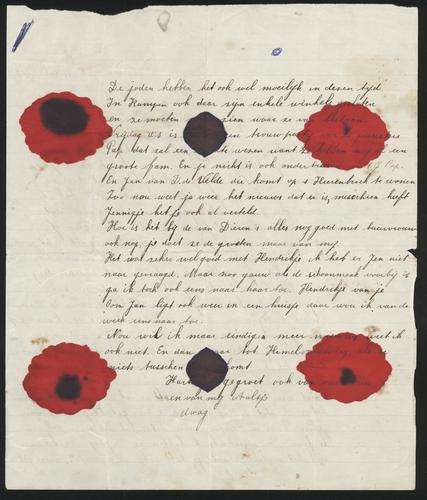 De joden hebben het ook wel moeilijk in dezen tijd.
In Kampen ook daar zijn enkele winkels gesloten
en ze moeten zien waar ze van
Vrijdag a.s. is een trouwpartij
Pap. dat zal een wezen want ze hebben een
groote fam. En je nicht is ook ondertrouwd Pap.
En Jan van D. de Velde die komt op 's Heerenbroek te wonen
Zoo nou weet je weer het nieuws dat er is, misschien heeft
Jennigje het je ook al verteld.
Hoe is het bij de van Dieren's alles nog goed met buurvrouw
ook nog, je doet ze de groeten maar van mij.
Het was zeker wel goed met Hendrikje ik heb er Jan niet
naar gevraagd. Maar nou gauw als de schoonmaak voorbij is
ga ik toch ook eens naar haar toe. Hendrikje van je
Oom Jan ligt ook weer in een huisje daar wou ik van de
week eens naar toe.
Nou wil ik maar eindigen meer nieuws weet ik
ook niet. En dan maar tot Hemelvaartsdag, als er
niets tusschen komt
Hart. gegroet ook van
en van mij Aaltje
dwag